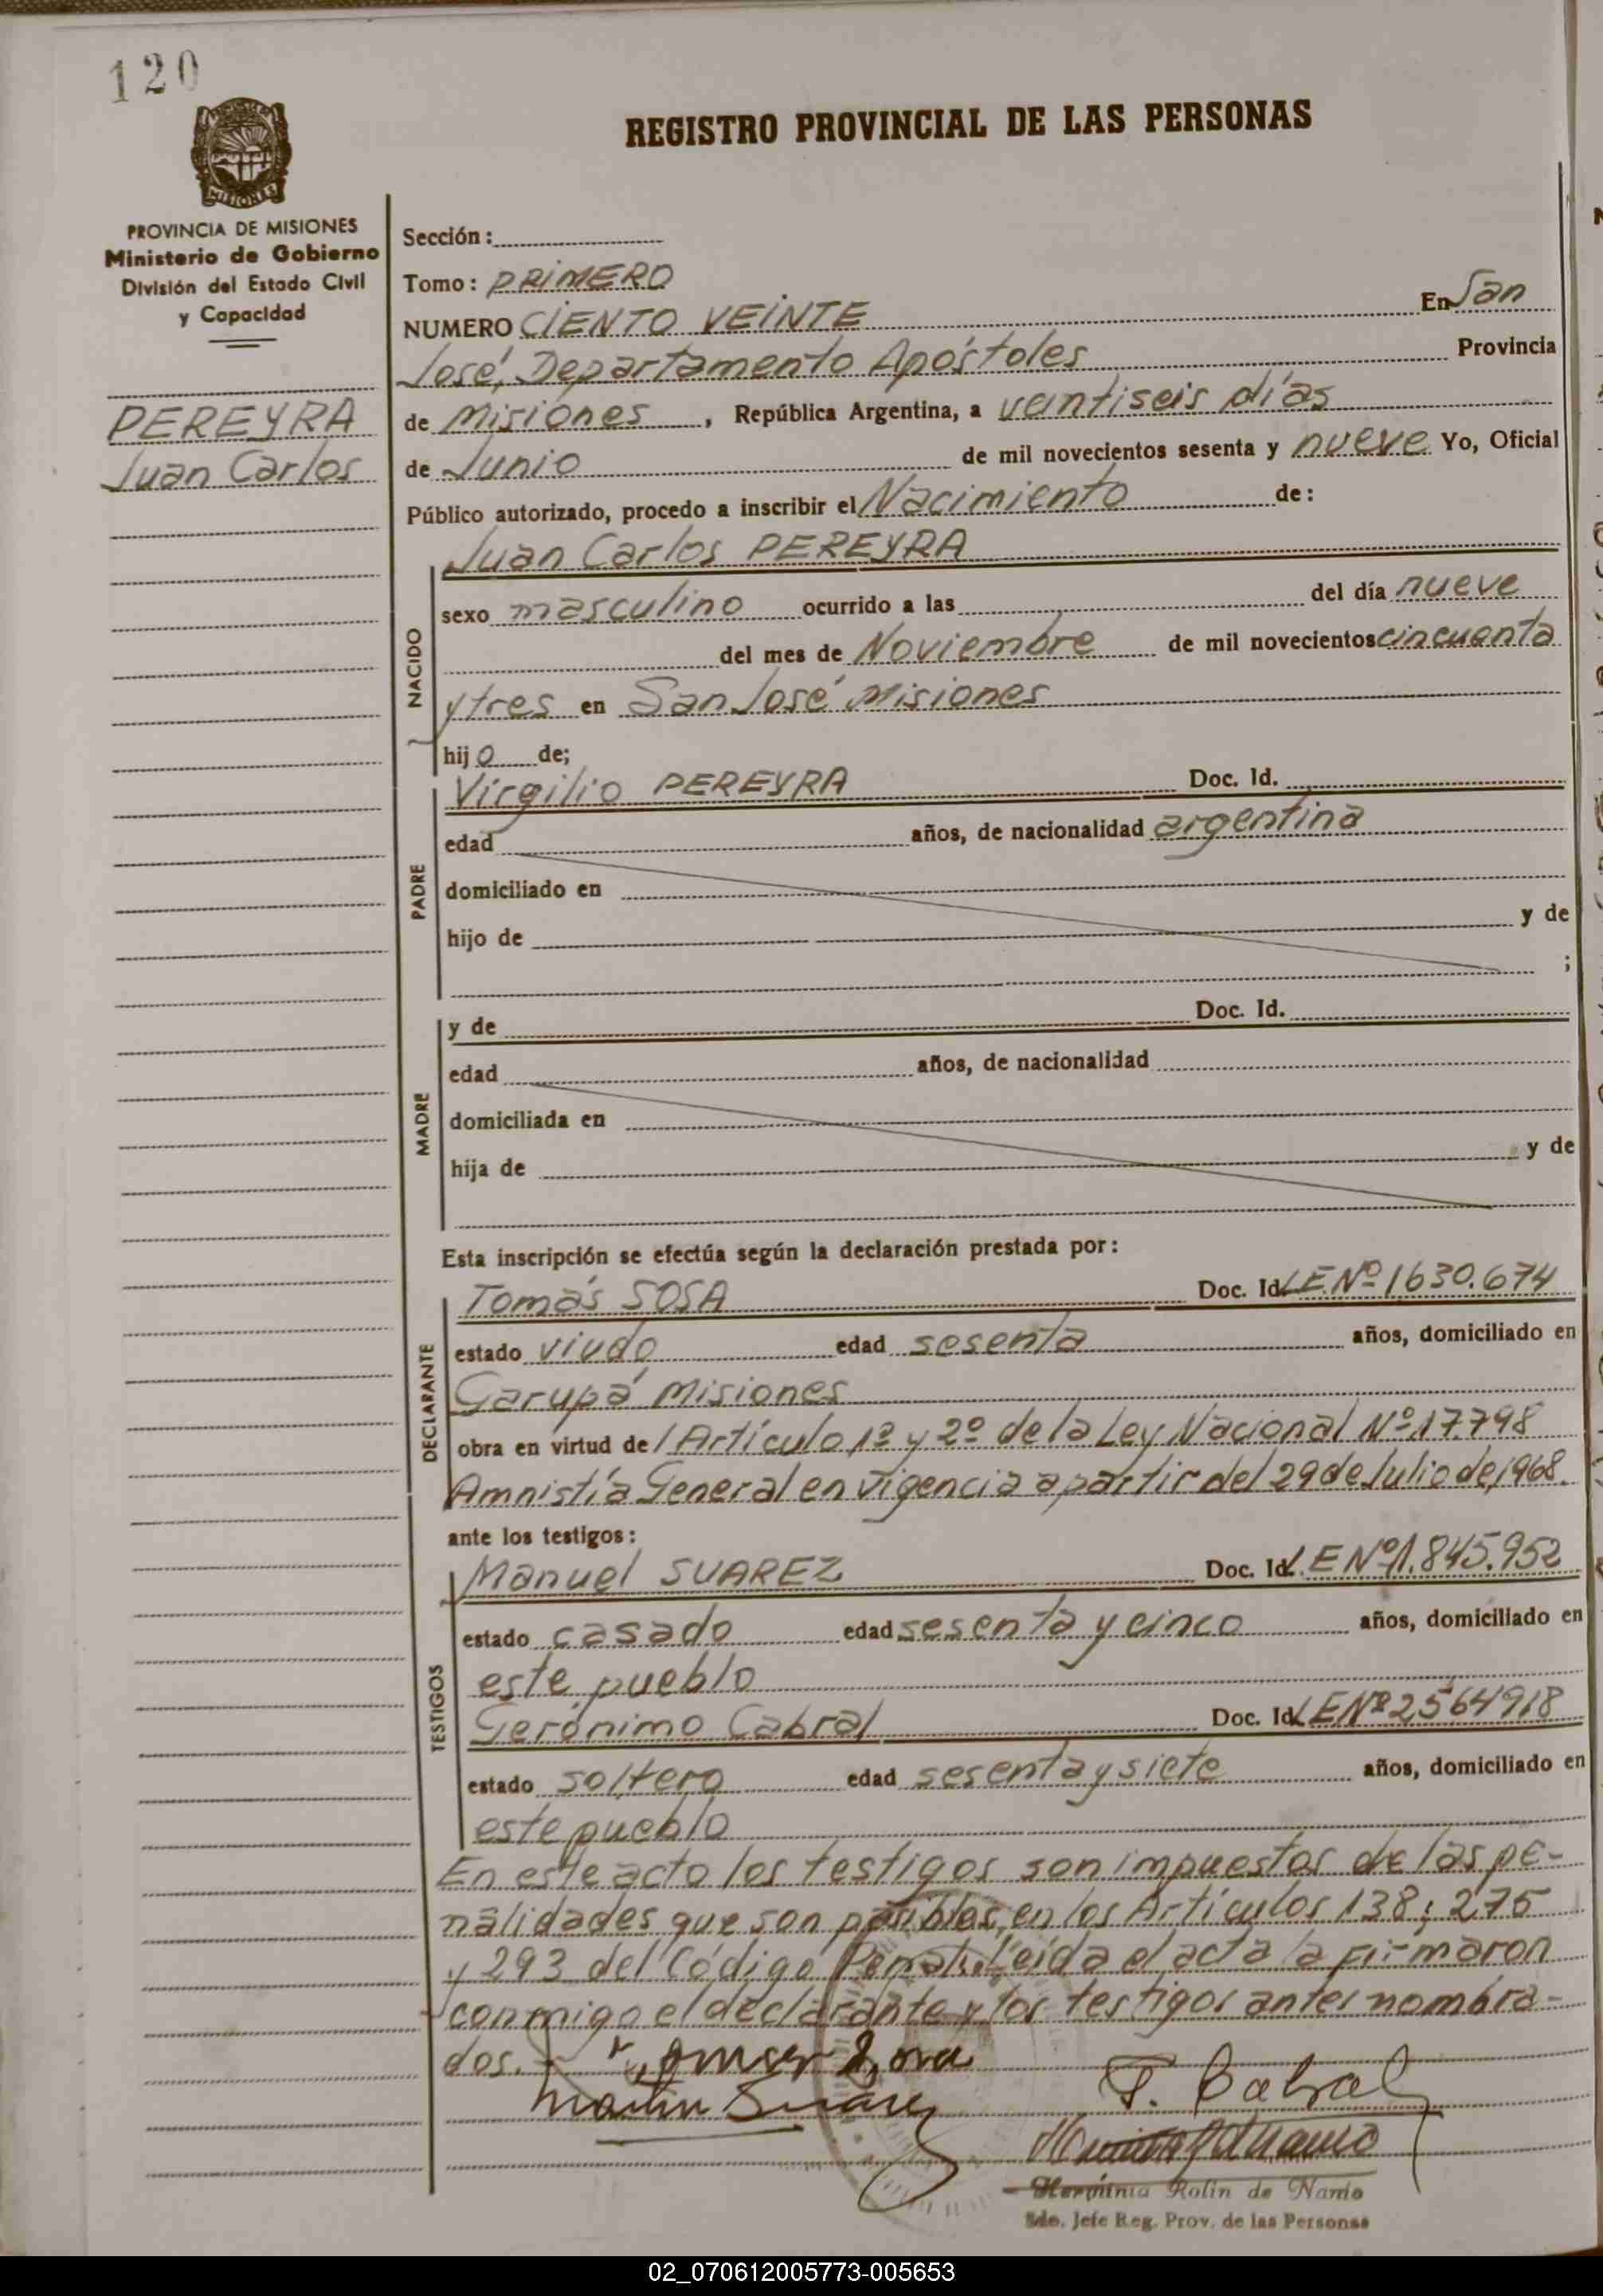 120
MISIONES
REGISTRO PROVINCIAL DE LAS PERSONAS
PROVINCIA DE MISIONES
Ministerio de Gobierno
División del Estado Civil
y Capacidad
PEREYRA
Juan Carlos
Sección:
Tomo: PRIMERO
NUMERO CIENTO VEINTE En San
José, Departamento Apóstoles Provincia
de Misiones, República Argentina, a veintiseis días
de Junio de mil novecientos sesenta y nueve Yo, Oficial
Público autorizado, procedo a inscribir el Nacimiento de:
NACIDO
Juan Carlos PEREYRA
sexo masculino ocurrido a las del día nueve
del mes de Noviembre de mil novecientos cincuenta
y tres en San José Misiones
hijo de;
PADRE
Virgilio PEREYRA Doc. Id.
edad años, de nacionalidad argentina
domiciliado en
hijo de y de
;
MADRE
y de Doc. Id.
edad años, de nacionalidad
domiciliada en
hija de y de
Esta inscripción se efectúa según la declaración prestada por:
DECLARANTE
Tomás SOSA Doc. Id. L.E.Nº 1630.674
estado viudo edad sesenta años, domiciliado en
Garupá Misiones
obra en virtud del Artículo 1º y 2º de la Ley Nacional Nº 17.798
Amnistía General en vigencia a partir del 29 de Julio de 1968.
ante los testigos:
TESTIGOS
Manuel SUAREZ Doc. Id. L.E Nº 1.845.952
estado casado edad sesenta y cinco años, domiciliado en
este pueblo
Gerónimo Cabral Doc. Id. L.E Nº 2.564918
estado soltero edad sesenta y siete años, domiciliado en
este pueblo
En este acto los testigos son impuestos de las pe-
nalidades que son pasibles, en los Artículos 138; 275
y 293 del Código Penal. Leída el acta la firmaron
conmigo el declarante y los testigos antes nombra-
dos.-
Suarez
Cabral
Herminia Rolin de Nardo
Jefe Reg. Prov. de las Personas
02_070612005773-005653